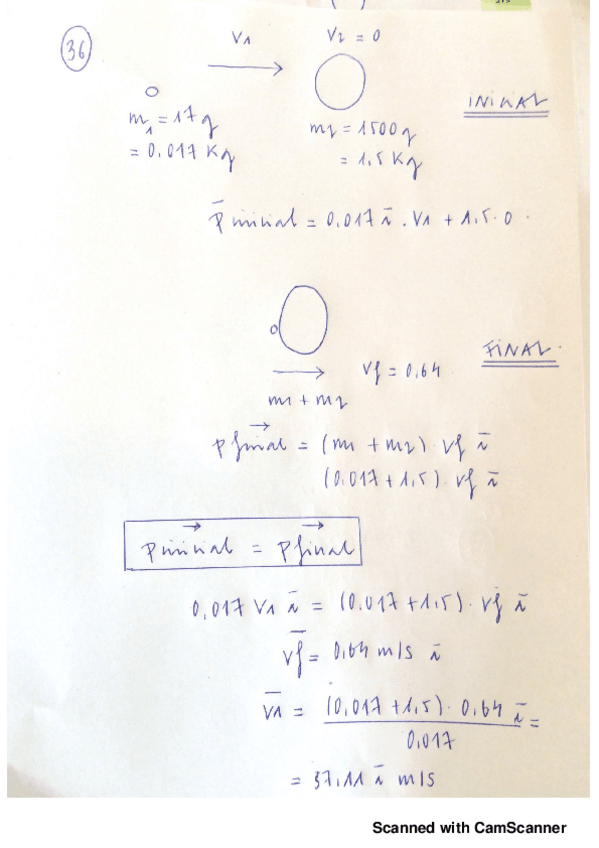 36
V1 V2 = 0
m1 = 17 g m2 = 1500 g INICIAL
= 0.017 Kg = 1.5 Kg
p̄ inicial = 0.017 ī . V1 + 1.5 · 0 .
FINAL.
Vf = 0.64
m1 + m2
p final = (m1 + m2) · vf ī
(0.017 + 1.5) · vf ī
p inicial = p final
0,017 V1 ī = (0.017 + 1.5) · vf ī
v̄f = 0.64 m/s ī
v̄1 = (0,017 + 1.5) · 0.64 ī =
0.017
= 57.11 ī m/s
Scanned with CamScanner